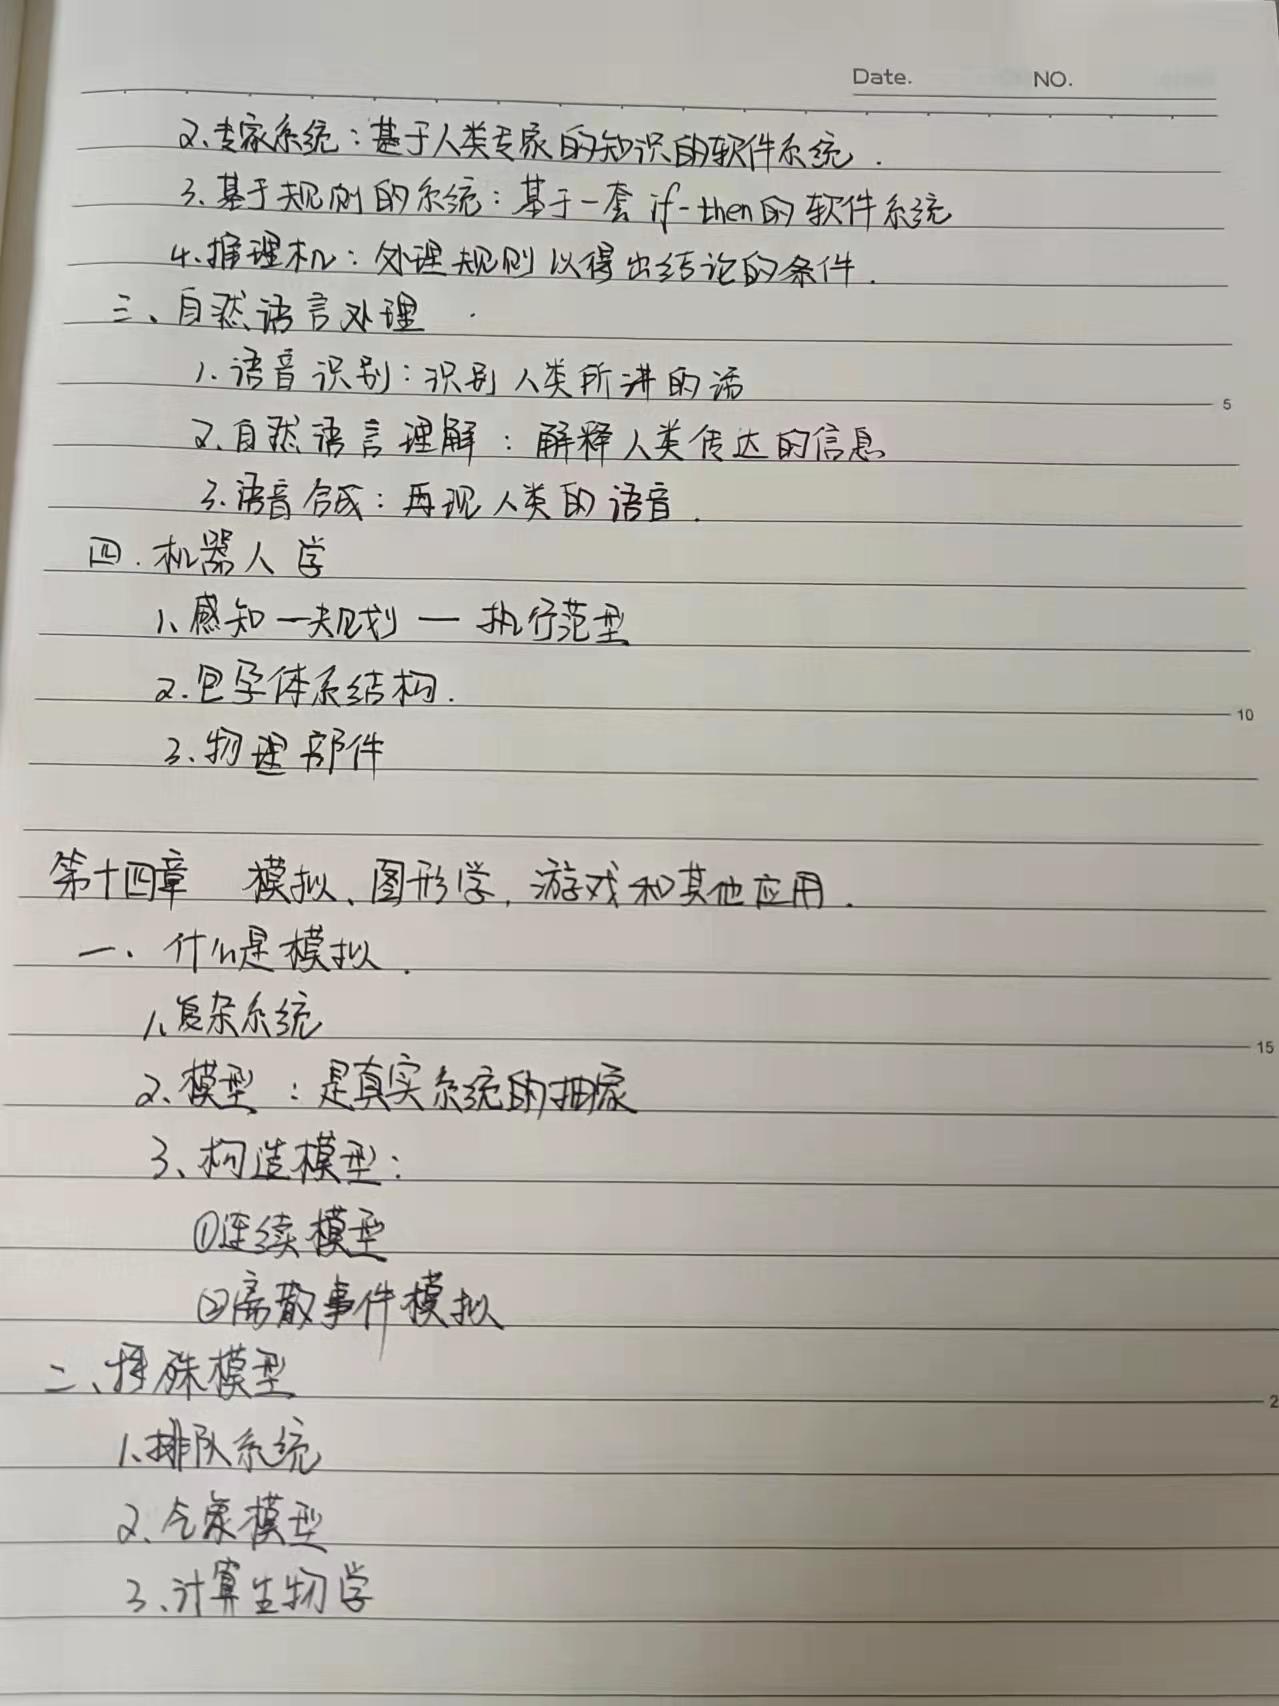 Date. NO.
2.专家系统：基于人类专家的知识的软件系统.
3.基于规则的系统：基于一套if-then的软件系统
4.推理机：处理规则以得出结论的条件.
三、自然语言处理
1.语音识别：识别人类所讲的话
2.自然语言理解：解释人类传达的信息
3.语音合成：再现人类的语音.
四.机器人学
1、感知—规划—执行范型
2.包孕体系结构.
3.物理部件
第十四章 模拟、图形学,游戏和其他应用.
一、什么是模拟.
1、复杂系统
2、模型：是真实系统的抽象
3、构造模型：
①连续模型
②离散事件模拟
二、特殊模型
1、排队系统
2、气象模型
3、计算生物学
5
10
15
2